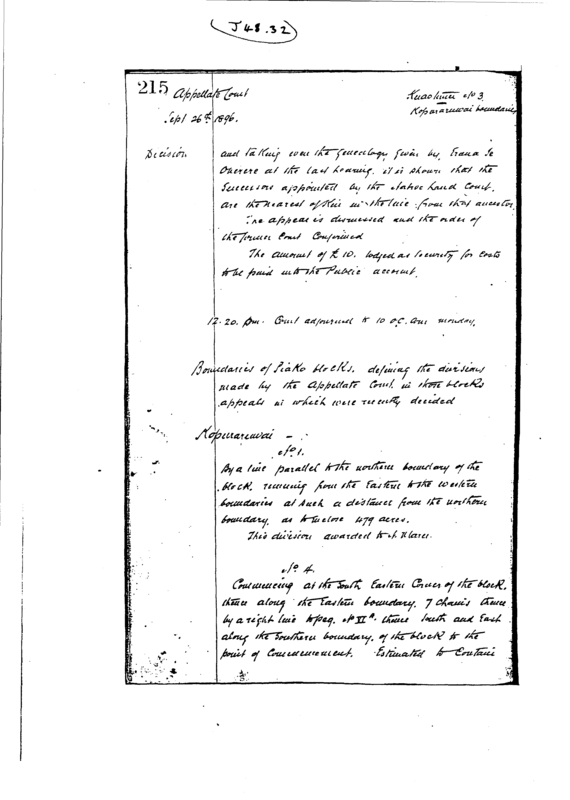 J 48.32
215 Appellate Court
Sept 26th 1896.
Kuaohiti No 3
Kopuraruwai boundaries
Decision
and taking even the genealogy given by Erana Te
Oherere at the last hearing, it is shown that the
Successors appointed by the Native Land Court,
are the nearest of Kin in the line from that ancestor
The appeal is dismissed and the order of
the former Court Confirmed
The amount of £10. lodged as security for costs
to be paid into the Public account.
12.20. pm. Court adjourned to 10 o.C. am monday.
Boundaries of Piako blocks. defining the divisions
made by the Appellate Court in those blocks
appeals in which were recently decided
Kopuraruwai -
No 1.
By a line parallel to the northern boundary of the
block, running from the Eastern to the Western
boundaries at such a distance from the northern
boundary, as to enclose 479 acres.
This division awarded to
No 4.
Commencing at the South Eastern Corner of the block.
thence along the Eastern boundary, 7 chains thence
by a right line to peg. No thence South and East
along the Southern boundary, of the block to the
point of Commencement. Estimated to Contain